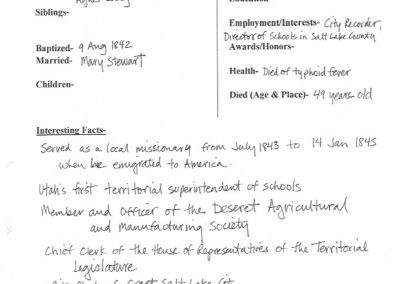 Siblings-
Baptized- 9 Aug 1842
Married- Mary Stewart
Children-
Employment/Interests- City Recorder,
Director of Schools in Salt Lake County
Awards/Honors-
Health- Died of typhoid fever
Died (Age & Place)- 49 years old
Interesting Facts-
Served as a local missionary from July 1843 to 14 Jan 1845
when he emigrated to America.
Utah's first territorial superintendent of schools
Member and Officer of the Deseret Agricultural
and Manufacturing Society
Chief Clerk of the House of Representatives of the Territorial
Legislature